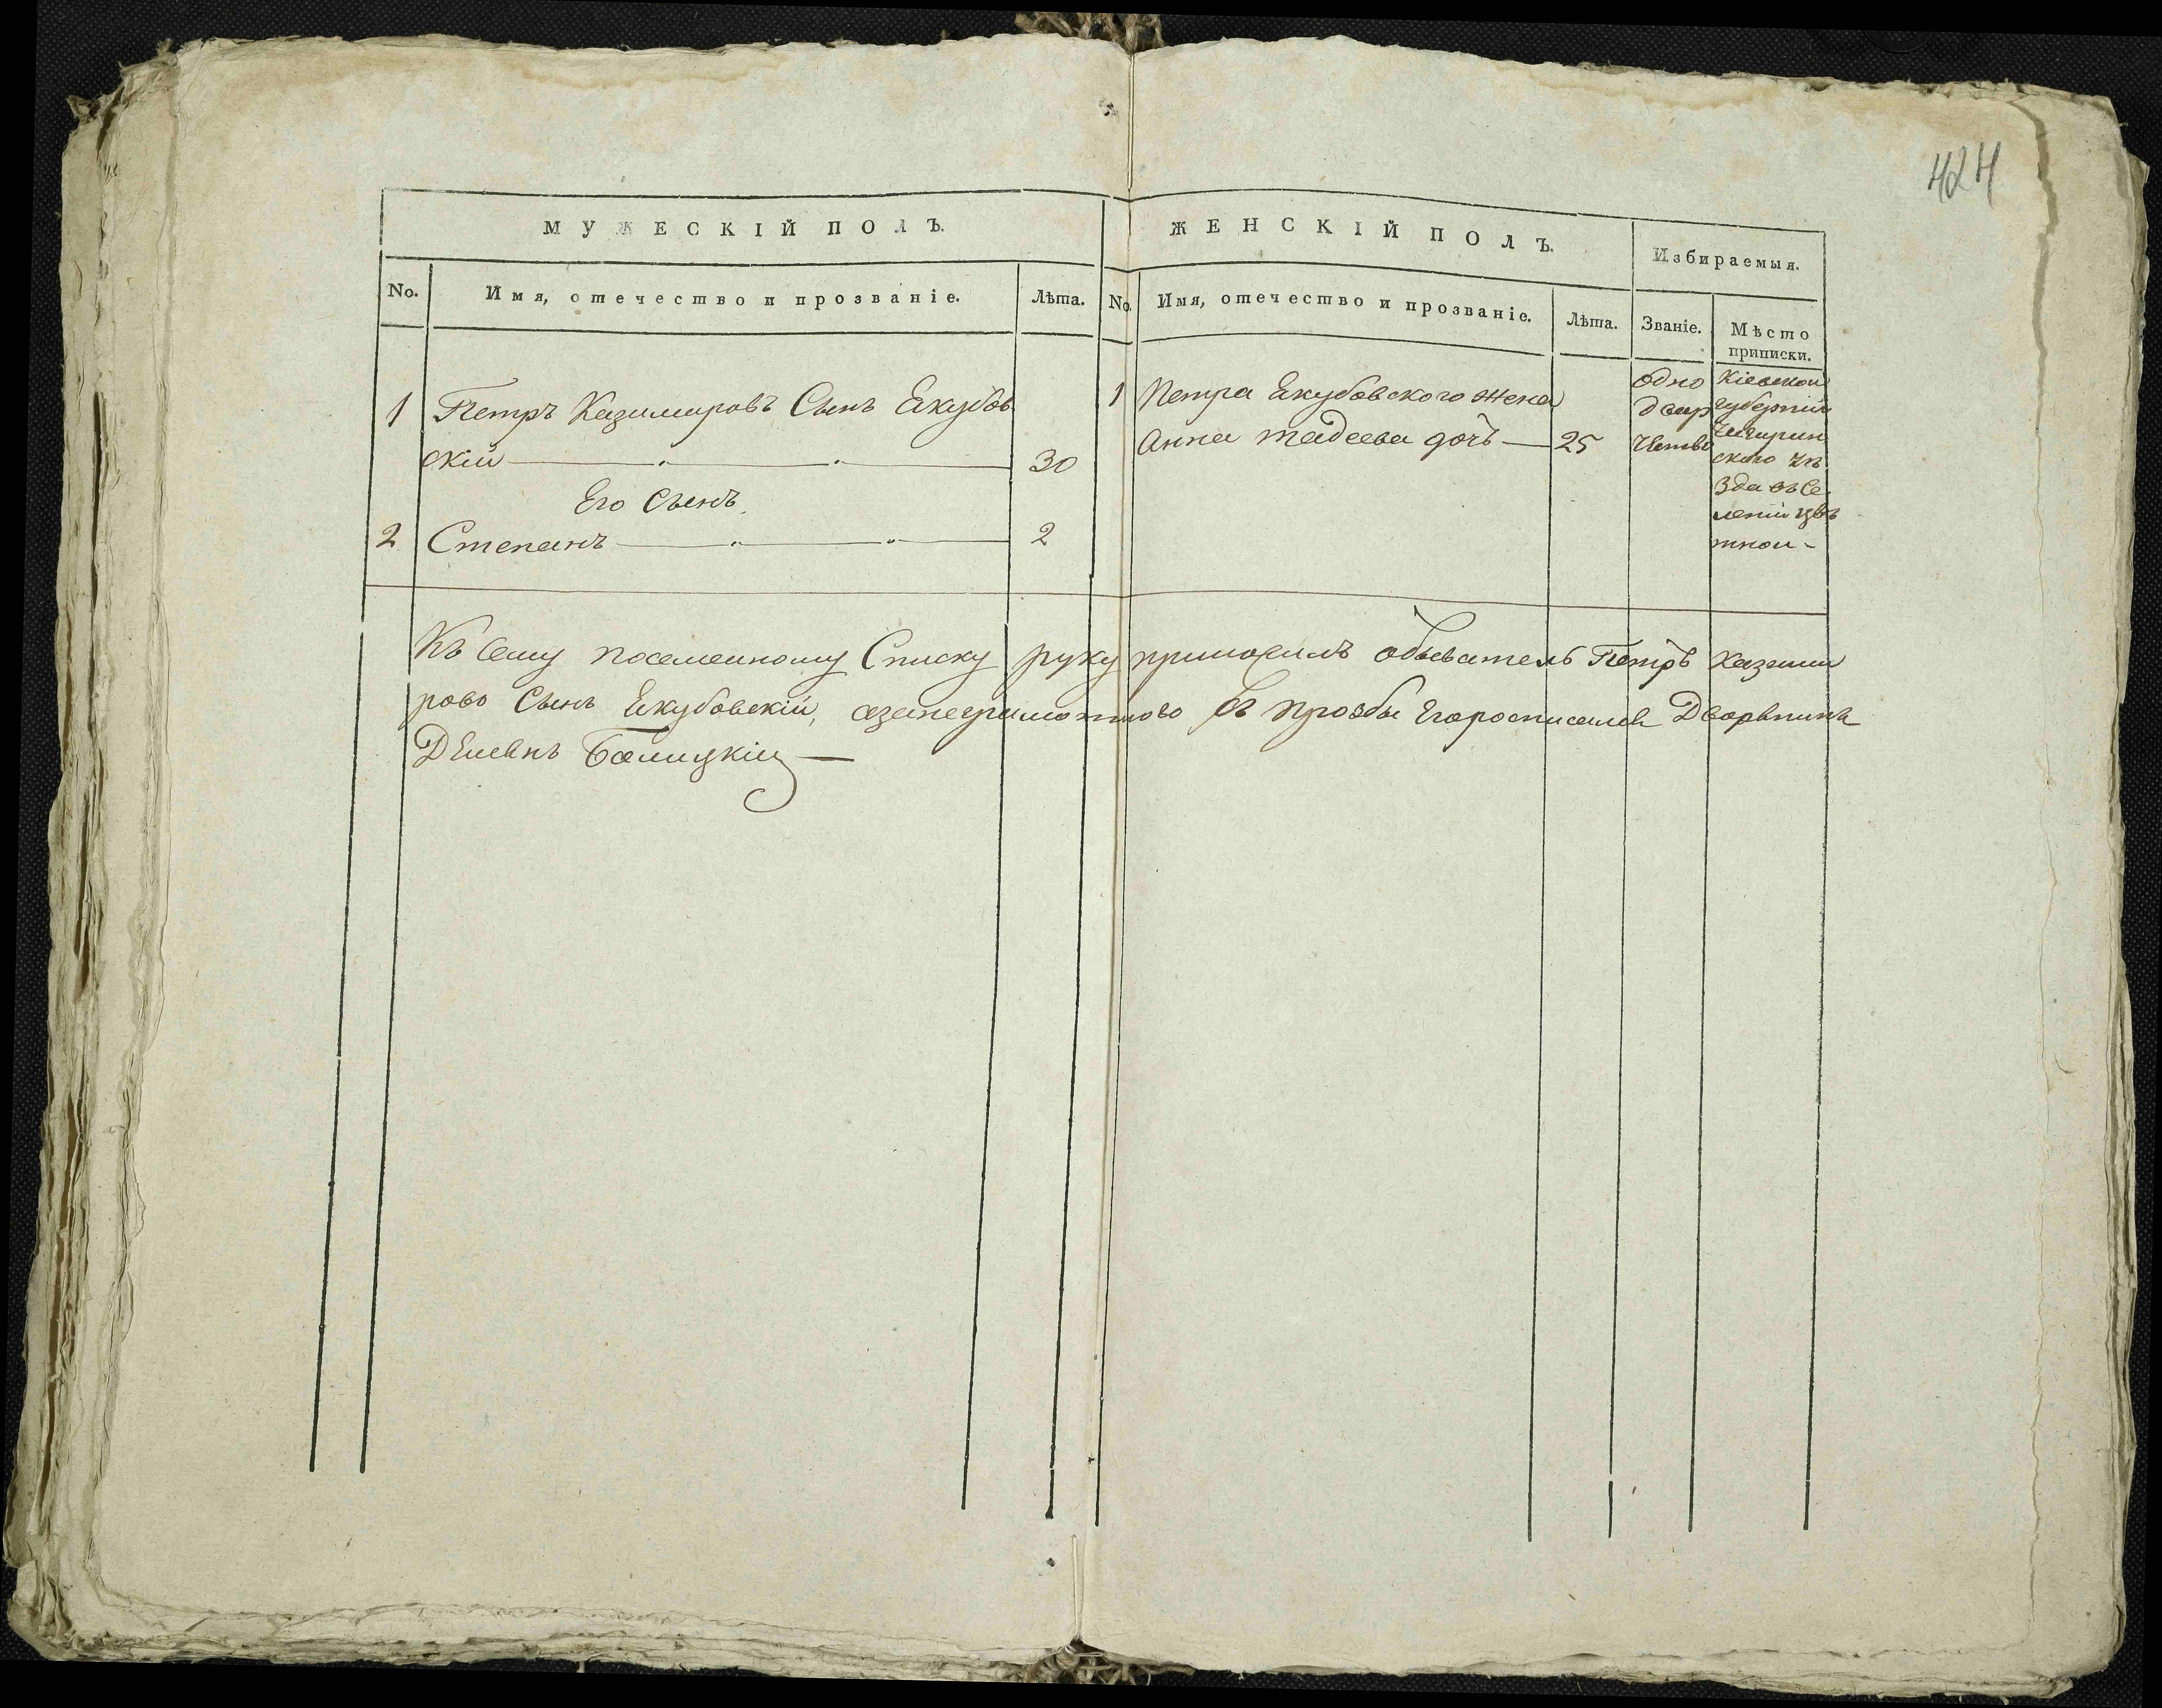 424
МУЖЕСКІЙ ПОЛЪ.
ЖЕНСКІЙ ПОЛЪ.
Избираемыя.
No.
Имя, отечество и прозваніе.
Лѣта.
No.
Имя, отечество и прозваніе.
Лѣта.
Званіе.
Мѣсто
приписки.
1 Петръ Казимировъ Сынъ Екубов
скій 30
Его Сынъ
2 Степанъ 2
1 Петра Екубовского жена
Анна тадеева дочъ 25
одно
двор
чство
Кіевской
губерніи
Чигирин
ского уѣ
зда въ Се
леніи цвѣ
тной
Къ Сему посемейному Списку руку приложилъ обыватель Петръ Казими
ровъ Сынъ Екубовскій, азанеграмотного по прозбы Егоросписался Дворянинъ